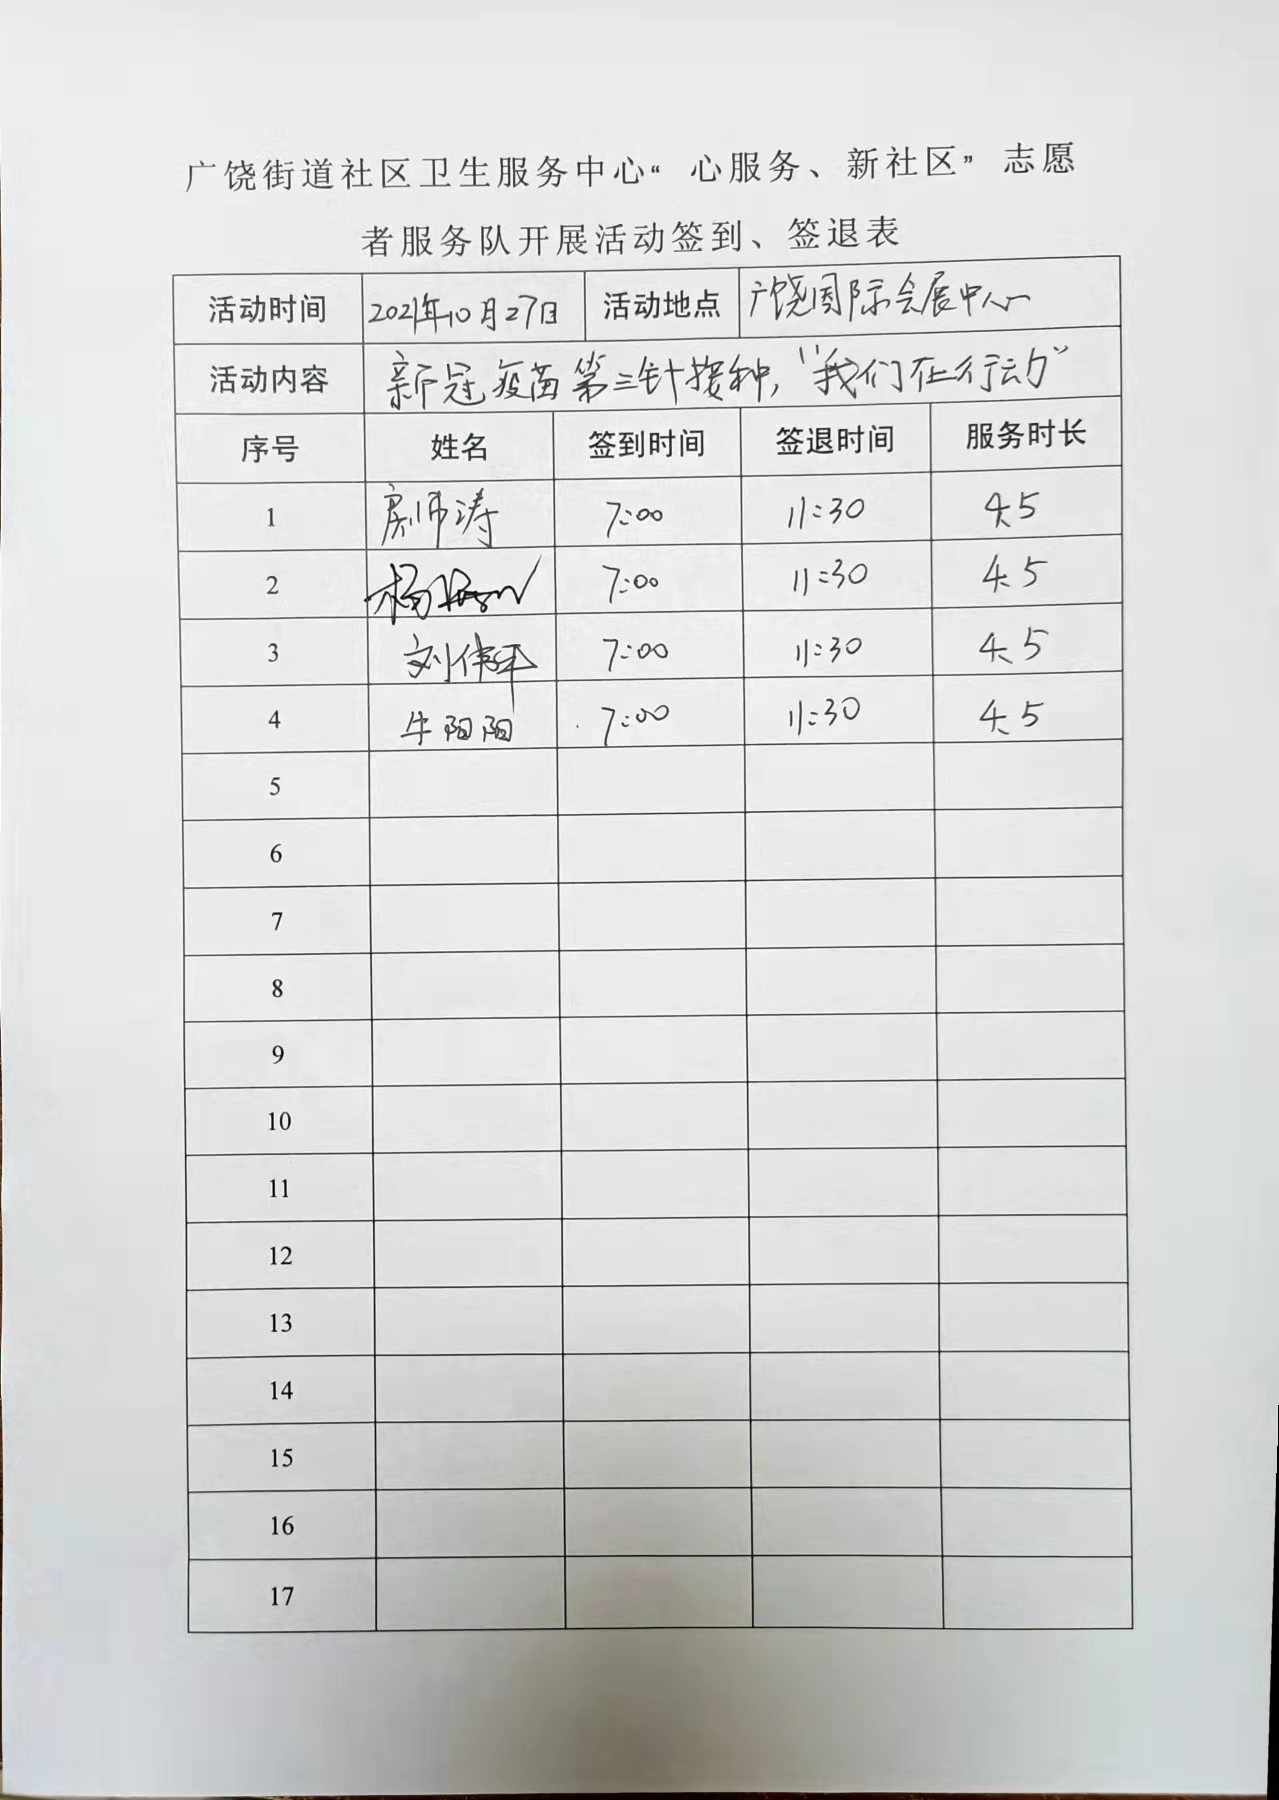 广饶街道社区卫生服务中心“ 心服务、新社区” 志愿
者服务队开展活动签到、签退表
活动时间 2021年10月27日 活动地点 广饶国际会展中心
活动内容 新冠疫苗第三针接种，“我们在行动”
序号 姓名 签到时间 签退时间 服务时长
1 房师涛 7:00 11:30 4.5
2 杨 7:00 11:30 4.5
3 刘伟 7:00 11:30 4.5
4 牛阳阳 7:00 11:30 4.5
5
6
7
8
9
10
11
12
13
14
15
16
17